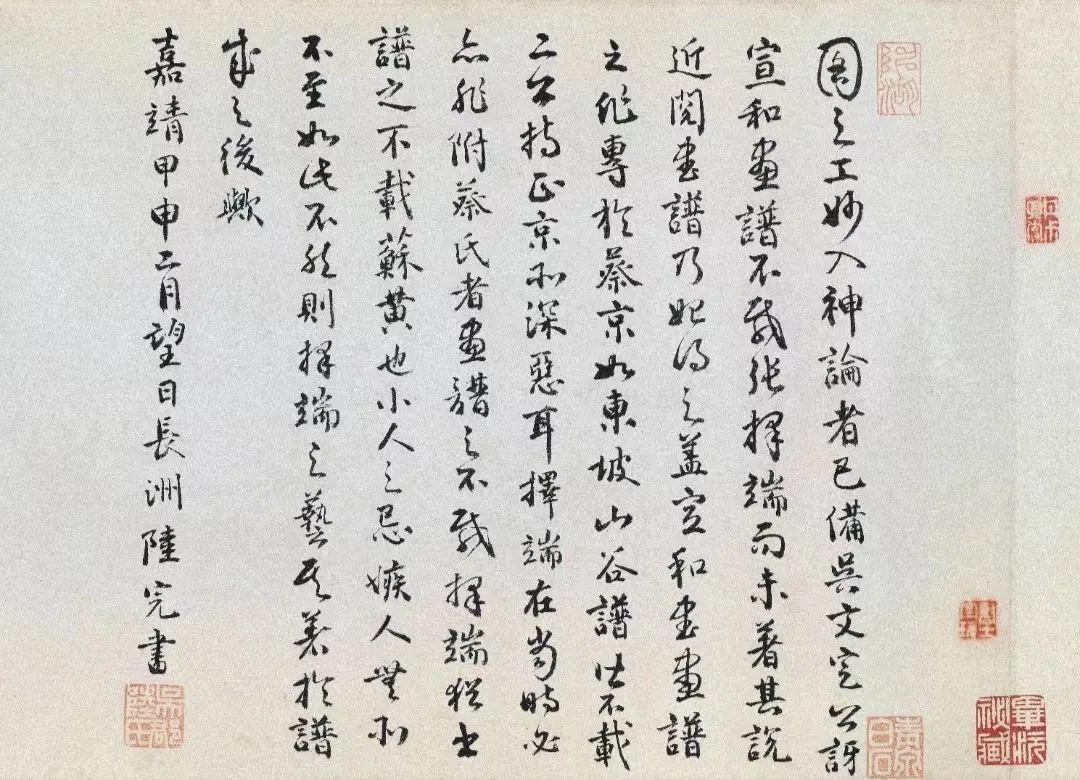 畢沅祕藏
圖之工妙入神論者已備吳文定公訝
宣和畫譜不載張擇端而未著其說
近閱書譜乃始得之蓋宣和書畫譜
之作專於蔡京如東坡山谷譜皆不載
二公持正京所深惡耳擇端在當時必
亦非附蔡氏者畫譜之不載擇端猶書
譜之不載蘇黃也小人之忌嫉人無所
不至如此不然則擇端之藝其著於譜
成之後歟
嘉靖甲申二月望日長洲陸完書